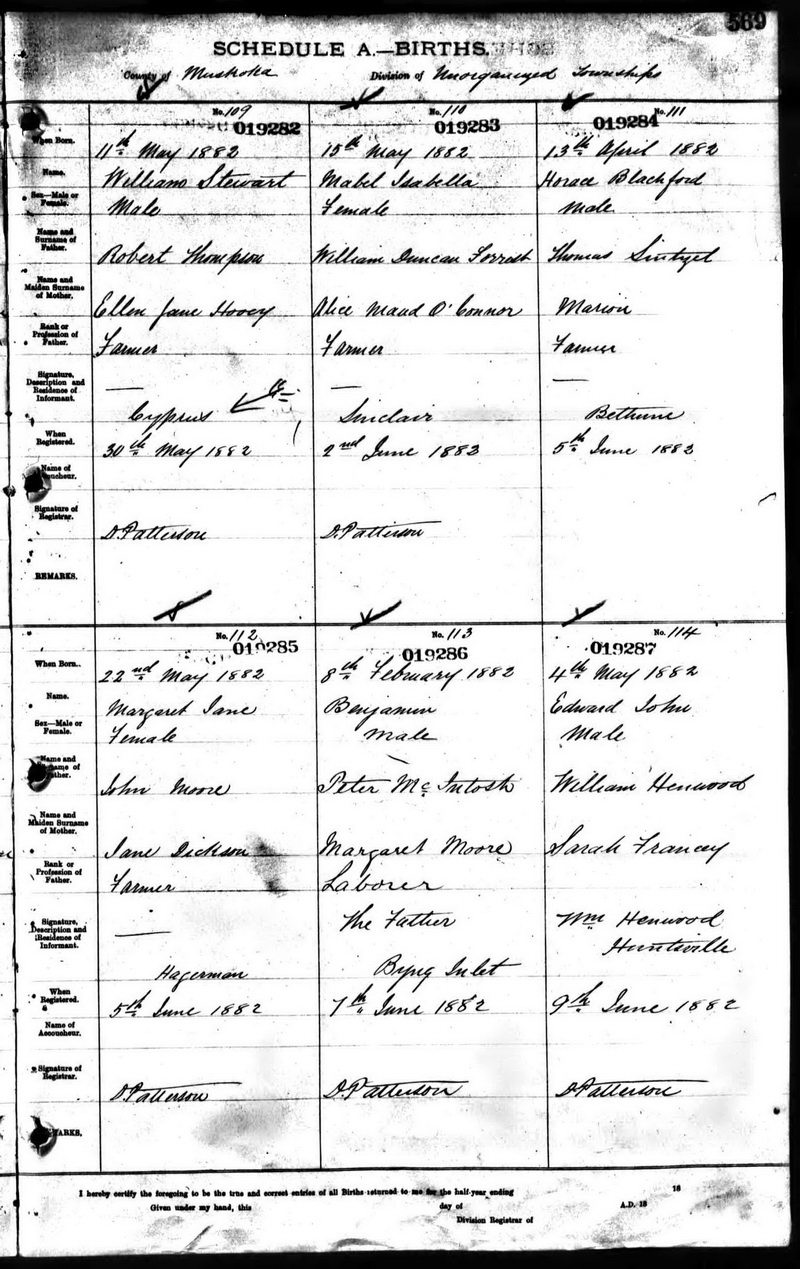 569
SCHEDULE A.—BIRTHS.
County of Muskoka Division of Unorganized Townships
No. 109 No. 110 No. 111
019282 019283 019284
When Born. 11th May 1882 15th May 1882 13th April 1882
Name. William Stewart Mabel Isabella Horace Blackford
Sex—Male or Female. Male Female Male
Name and Surname of Father. Robert Thompson William Duncan Forrest Thomas
Name and Maiden Surname of Mother. Ellen Jane Hovey Alice Maud O'Connor Marion
Rank or Profession of Father. Farmer Farmer Farmer
Signature, Description and Residence of Informant. — — —
Cyprus Sinclair Bethune
When Registered. 30th May 1882 2nd June 1882 5th June 1882
Name of
Signature of Registrar. D. Patterson D. Patterson
REMARKS.
No. 112 No. 113 No. 114
019285 019286 019287
When Born.. 22nd May 1882 8th February 1882 4th May 1882
Name. Margaret Jane Benjamin Edward John
Sex—Male or Female. Female Male Male
Name and Father. John Moore Peter McIntosh William Henwood
Name and Maiden Surname of Mother. Jane Dickson Margaret Moore Sarah Francey
Rank or Profession of Father. Farmer Laborer
Signature, Description and Residence of Informant. — The Father Wm Henwood
Hagerman Byng Inlet Huntsville
When Registered. 5th June 1882 7th June 1882 9th June 1882
Name of Accoucheur.
Signature of Registrar. D. Patterson D. Patterson D. Patterson
I hereby certify the foregoing to be the true and correct entries of all Births returned to me for the half-year ending 18
Given under my hand, this day of A.D. 18
Division Registrar of